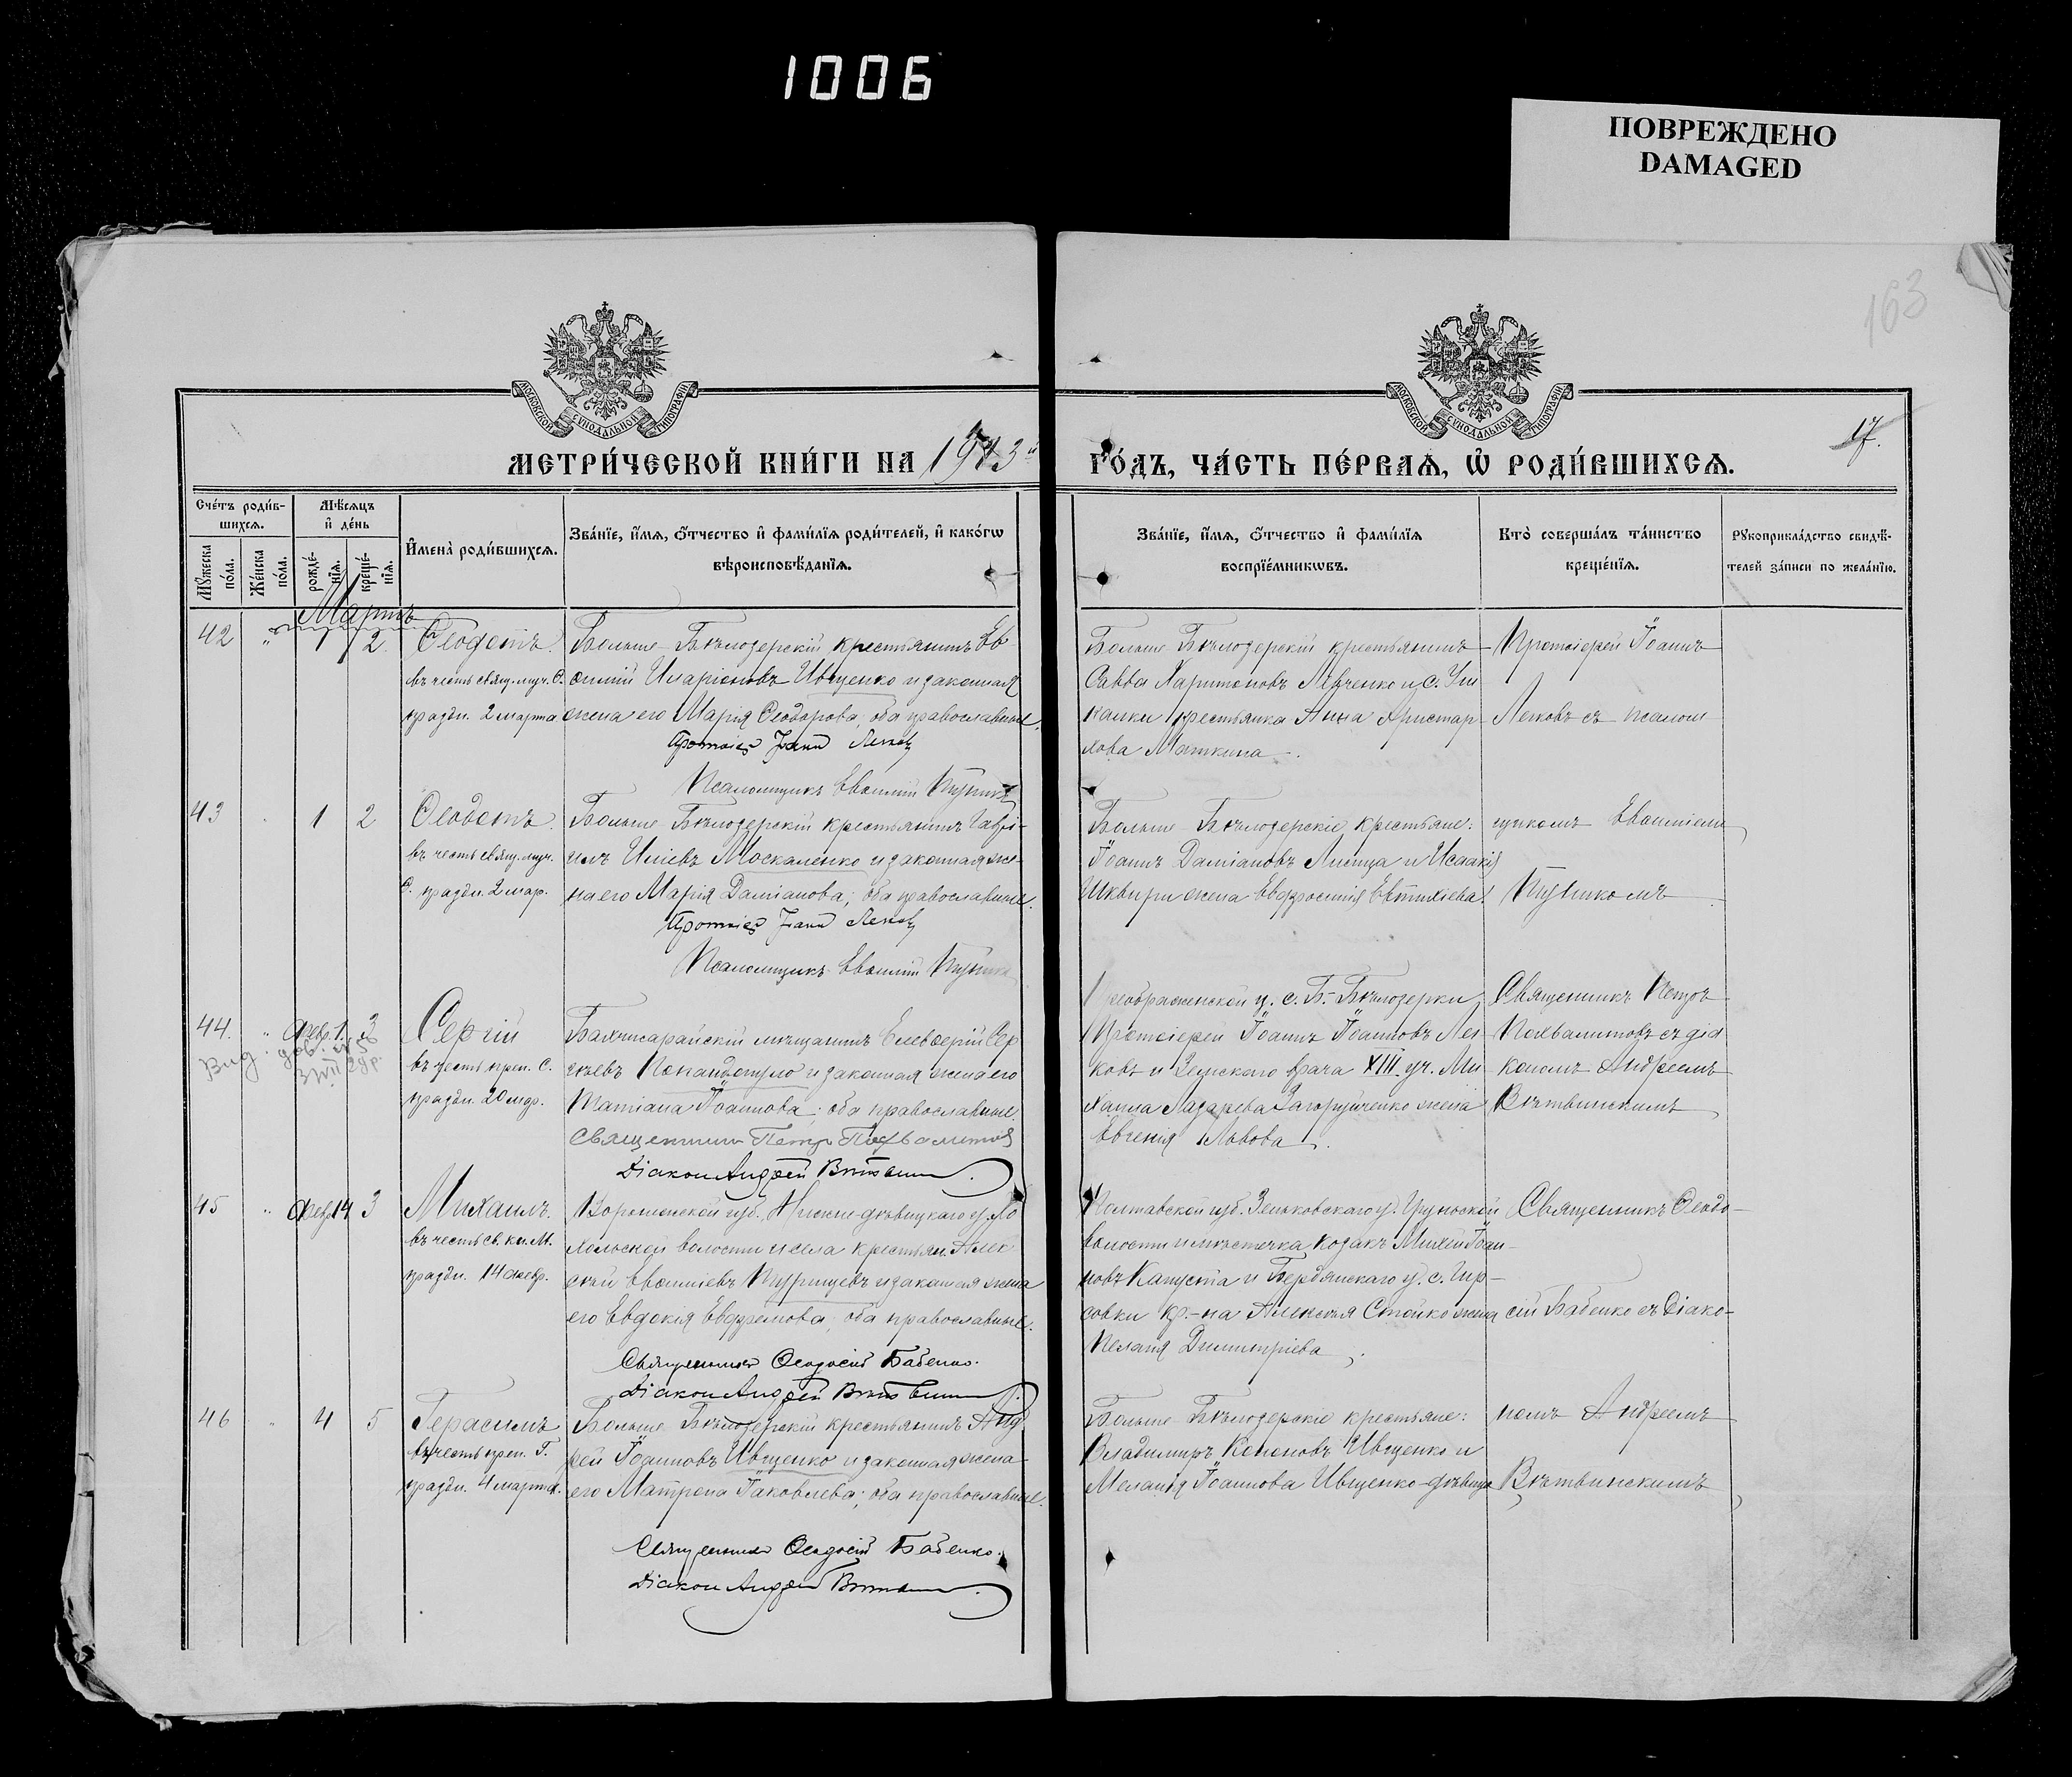 1006
ПОВРЕЖДЕНО
DAMAGED
163
МОСКОВСКОЙ СУНОДАЛЬНОЙ ТИПОГРАФІИ
МОСКОВСКОЙ СУНОДАЛЬНОЙ ТИПОГРАФІИ
17.
МЕТРИ́ЧЕСКОЙ КНИ́ГИ НА 1913й
ГО́ДЪ, ЧА́СТЬ ПЕ́РВАѦ, Ѡ҆ РОДИ́ВШИХСѦ.
Сче́тъ роди́в-
шихсѧ.
Мꙋ́жеска
по́ла.
Же́нска
по́ла.
Мѣ́сѧцъ
и҆ де́нь
рожде́-
нїѧ.
креще́-
нїѧ.
И҆мена̀ роди́вшихсѧ.
Зва́нїе, и҆́мѧ, ѻ҆́тчество и҆ фами́лїѧ роди́телей, и҆ како́гѡ
вѣроисповѣ́данїѧ.
Зва́нїе, и҆́мѧ, ѻ҆́тчество и҆ фами́лїѧ
воспрїе́мникѡвъ.
Кто̀ соверша́лъ та́инство
креще́нїѧ.
Рꙋкоприкла́дство свидѣ́-
телей за́писи по жела́нїю.
Мартъ
42 " 1 2
Ѳеодотъ.
въ честь свящ. муч. Ѳ.
праздн. 2 марта
Больше-Бѣлозерскій крестьянинъ Ев-
ѳимій Иларіоновъ Иващенко и законная
жена его Марія Ѳеодорова, оба православные.
Протоіер Іоанн Легков
Псаломщикъ Евѳимій Путникъ
Больше Бѣлозерскій крестьянинъ
Савва Харитоновъ Левченко и с. Уш
калки крестьянка Анна Аристар-
хова Маткина
Протоіерей Іоаннъ
Легковъ съ псалом
43 1 2
Ѳеодотъ.
въ честь свящ. муч.
Ѳ. праздн. 2 мар.
Больше Бѣлозерскій крестьянинъ Гаврі-
илъ Иліевъ Москаленко и законная же-
на его Марія Даміанова; оба православные.
Протоіер Іоанн Легков
Псаломщикъ Евѳимій Путник
Больше Бѣлозерскіе крестьяне:
Іоаннъ Даміановъ Лисица и Исаакія
Шквири жена Евфросинія Евтихіева
щикомъ Евѳиміемъ
Путникомъ
44. " Февр. 1. 3
Сергій
въ честь преп. С.
праздн. 20 мар.
Бахчисарайскій мѣщанинъ Елевѳерій Сер
гѣевъ Попандопуло и законная жена его
Татіана Іоаннова; оба православные
Священник Петр Похвалитов
Діакон Андрей Вѣтвин
Преображенской ц. с. Б.-Бѣлозерки
Протоіерей Іоаннъ Іоанновъ Лег
ковъ и Земскаго врача XIII уч. Ми
хаила Лазарева Загоруйченко жена
Евгенія Львова
Священникъ Петръ
Похвалитовъ съ діа
кономъ Андреемъ
Вѣтвинскимъ
45 " Февр 14 3
Михаилъ.
въ честь св. кн. М.
праздн. 14 февр.
Воронежской губ. Нижне-дѣвицкаго у.
хольской волости и села крестьян. Алек
сѣй Евѳиміевъ и законная жена
его Евдокія Евфремова; оба православные.
Священник Ѳеодосій Бабенко.
Діакон Андрей Вѣтвин
Полтавской губ. Зеньковскаго у. Груньской
волости и мѣстечка козакъ Михей Іоан-
новъ Капуста и Бердянскаго у. с. Гир-
совки кр-на Алексѣя Стойко жена
Пелагія Димитріева
Священникъ Ѳеодо-
сій Бабенко съ Діако-
46 4 5
Герасимъ
въ честь преп. Г.
праздн. 4 марта.
Больше Бѣлозерскій крестьянинъ Анд
рей Іоанновъ Иващенко и законная жена
его Матрона Іаковлева; оба православные.
Священник Ѳеодосій Бабенко.
Діакон Андрей Вѣтвин
Больше Бѣлозерскіе крестьяне:
Владимиръ Кононовъ Иващенко и
Меланія Іоаннова Иващенко-дѣвица
номъ Андреемъ
Вѣтвинскимъ